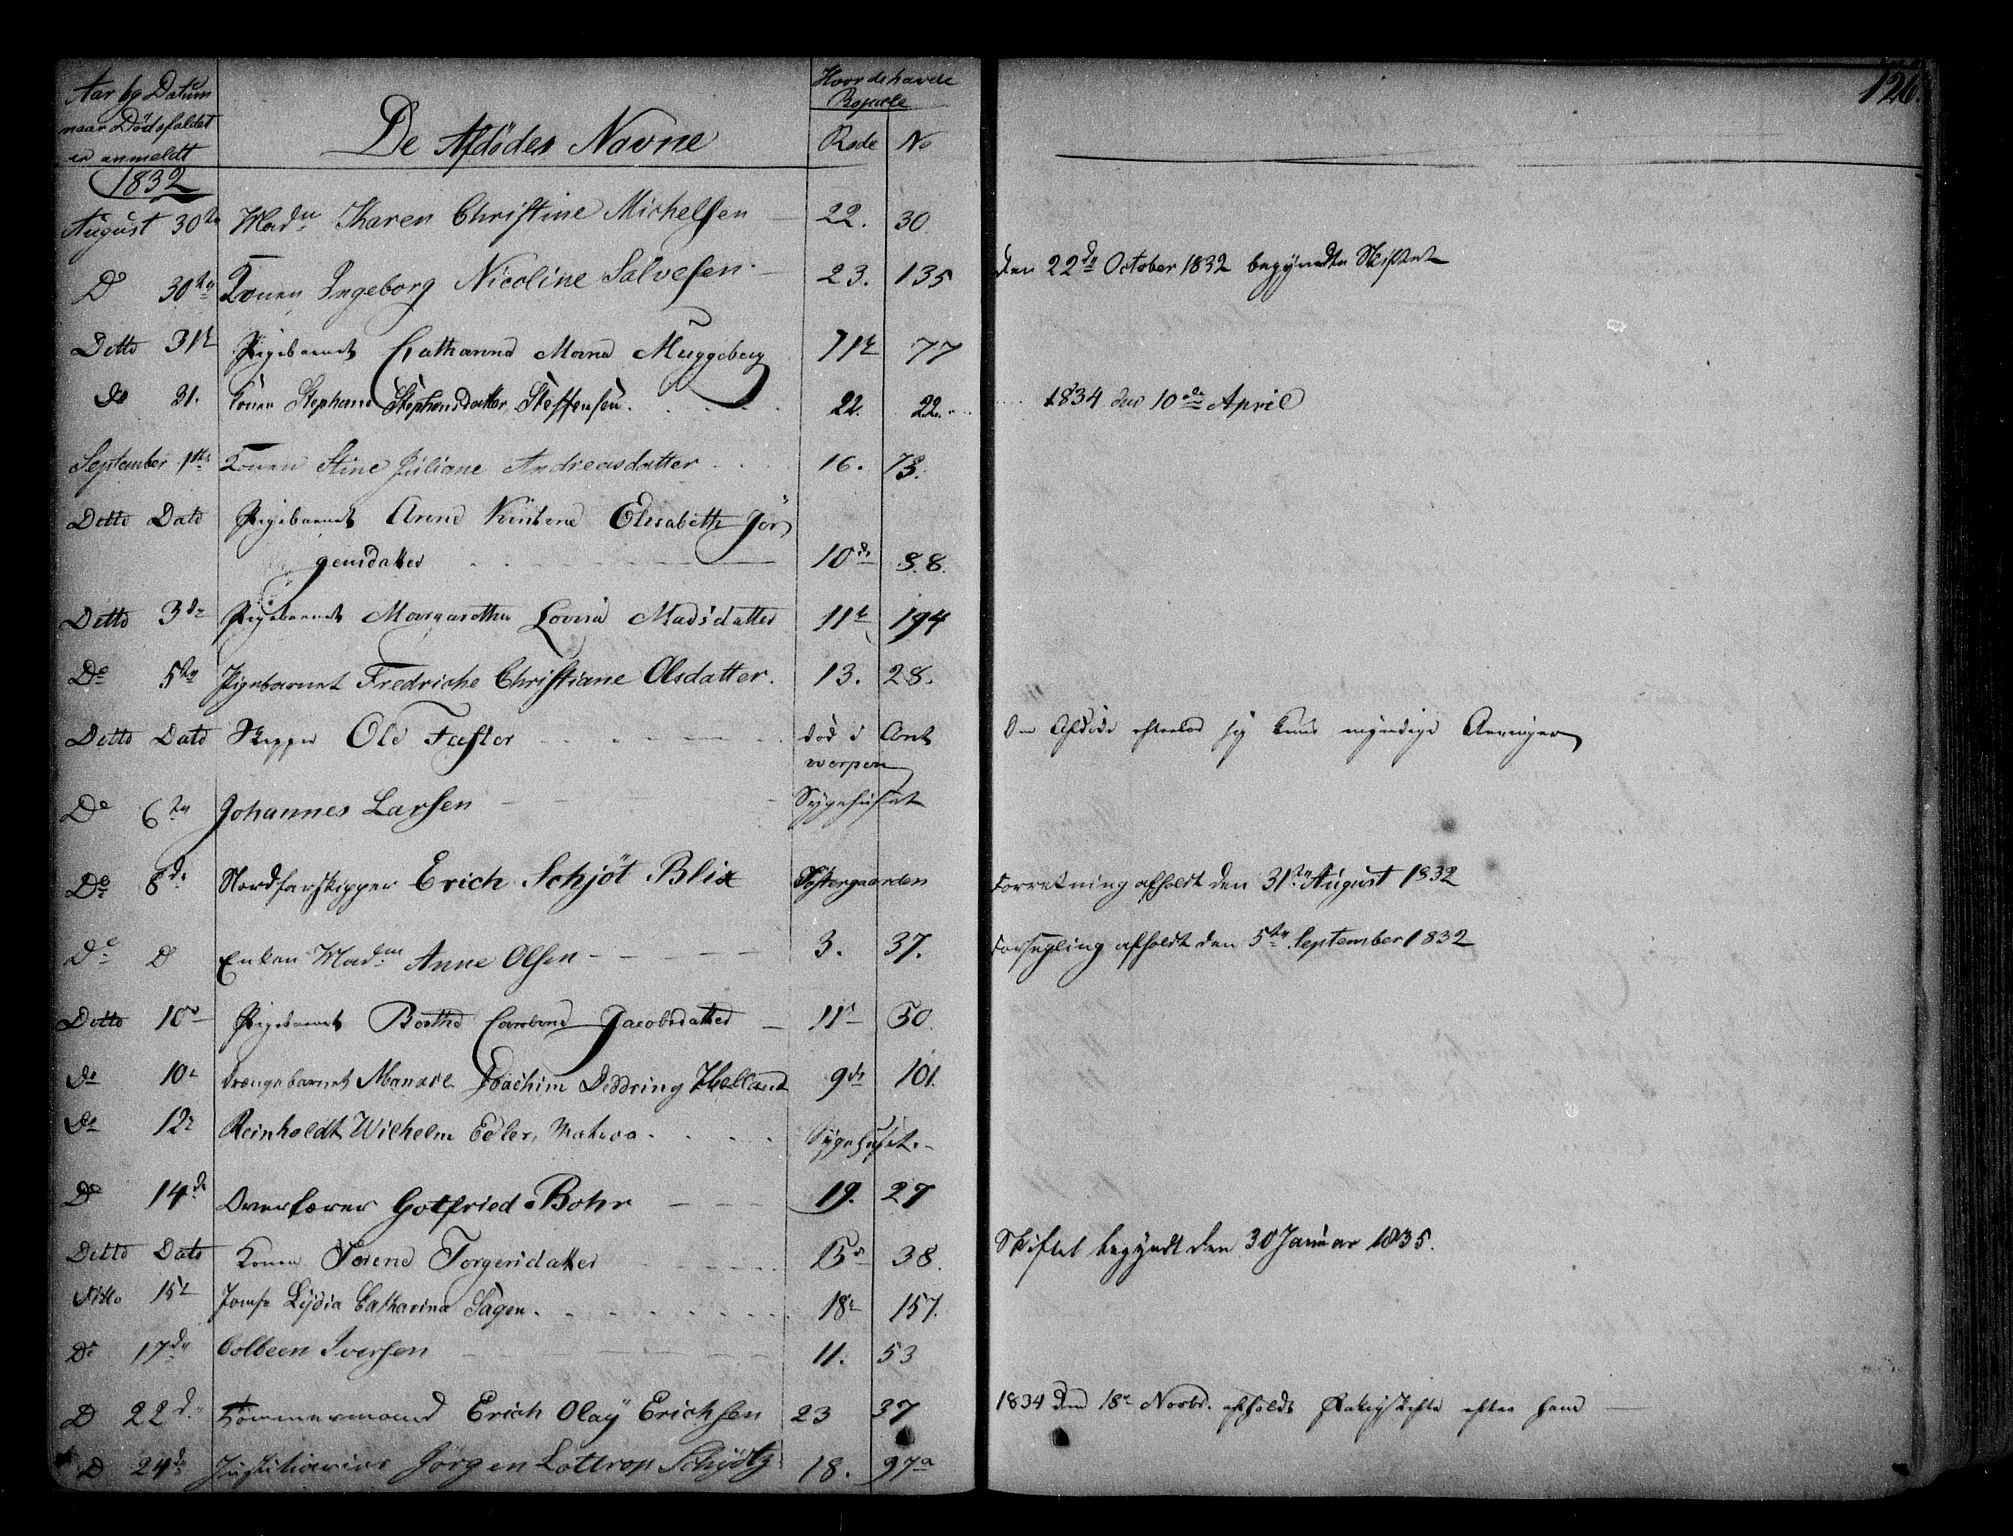 126.
Aar og Datum
naar Dödsfaldet
er anmeldt
De Afdödes Navne
Hvor de havde
Bopæle
Rode No
1832
August 30te Madm Karen Christine Michelsen 22. 30.
Do 30te Konen Ingeborg Nicoline Salvesen 23. 135 den 22de October 1832 begyndte Skiftet
Ditto 31te Pigebarnet Catharina Maria Muggeborg 71te 77
do 31. Konen Stephane Stephensdatter Steffensen. 22. 22. 1834 den 10de April
September 1ste Konen Stine Juliane Andreasdatter 16. 73.
Ditto Dato Pigebarnet Elisabeth Jör
gensdatter 10de 88.
Ditto 3de Pigebarnet Margaretha Lovisa Madsdatter 11te 194
Do 5te Pigebarnet Fredriche Christiane Olsdatter. 13. 28.
Ditto Dato Skipper Ole Faster död i Ant
werpen Den Afdöde efterlod sig kuns myndige Arvinger
Do 6te Johannes Larsen Sygehuset
Do 8de Nordfarskipper Erich Schjöt Blix Tostergaarden Forretning afholdt den 31te August 1832
Do D Enken Madm Anne Olsen 3. 37. Forsegling afholdt den 5te September 1832
Ditto 10de Pigebarnet Berthe Jacobsdatter 11te 50.
Do 10de Drengebarnet Joachim Deddring Helland 9de 101.
Do 12te Reinholdt Wilhelm Edler, Matros. Sygehuset.
Do 14de Overlærer Gotfried Bohr 19. 27
Ditto Dato Konen Torgersdatter 15de 38. Skiftet begyndt den 30 Januar 1835.
Ditto 15te Jomfr Lydia Catharina Sagen. 18te 157.
Do 17de Colbeen Iversen 11. 53
D 22de Tömmermand Erich Olay Erichsen 23 37 1834 den 18de Novbr. afholdt efter ham
D 24de Justitiarius Jörgen Lottrop Schydtz 18. 97a